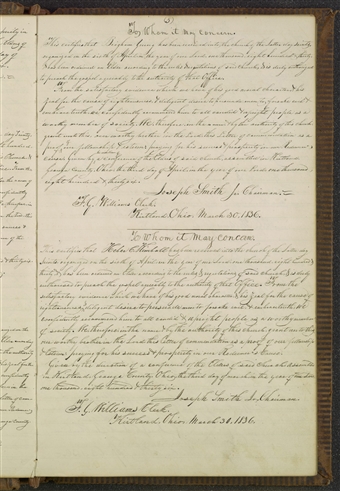 To Whom it may concern
This certifies that Brigham Young has been received into the church of the Latter day Saints
organized on the sixth of April in the year of our Lord one thousand eight hundred & thirty
& has been ordained an Elder according to the rules & regulations of said church & is duly authorized
to preach the gospel agreeably to the authority of that Office
From the satisfactory evidence which we have of his good moral character & his
zeal for the cause of righteousness & diligent desire to persuade men to forsake evil &
embrace truth we confidently recommend him to all candid & upright people as a
worthy member of society. We therefore in the name & by the authority of this church
grant unto this our worthy brother in the Lord this letter of commendation as a
proof of our fellowship & Esteem praying for his success & prosperity in our Redeemer's
cause Given by a conference of the Elders of said church assembled in Kirtland
Geauga County Ohio the third day of March in the year of our Lord one thousand
eight hundred & thirty six
Joseph Smith Jr. Chairman
F. G. Williams Clerk
Kirtland Ohio March 30. 1836.
To Whom it May concern
This certifies that Heber C Kimball has been received into the church of the Latter day
Saints organized on the sixth of April in the year of our Lord one thousand eight hundred &
thirty & has been ordained an Elder according to the rules & regulations of said church & is duly
authorized to preach the gospel agreeably to the authority of that Office From the
satisfactory evidence which we have of his good moral character & his zeal for the cause of
righteousness & diligent desire to persuade men to forsake evil & embrace truth we
confidently recommend him to all candid & upright people as a worthy member
of society. We therefore in the name & by the authority of this church grant unto this
our worthy brother in the Lord this letter of commendation as a proof of our fellowship &
Esteem praying for his success & prosperity in our Redeemer's Cause
Given by the direction of a conference of the Elders of said church assembled
in Kirtland Geauga County Ohio the third day of March in the year of our Lord
one thousand eight hundred & thirty six.
Joseph Smith Jr. Chairman
F. G. Williams Clerk.
Kirtland, Ohio March 30. 1836.